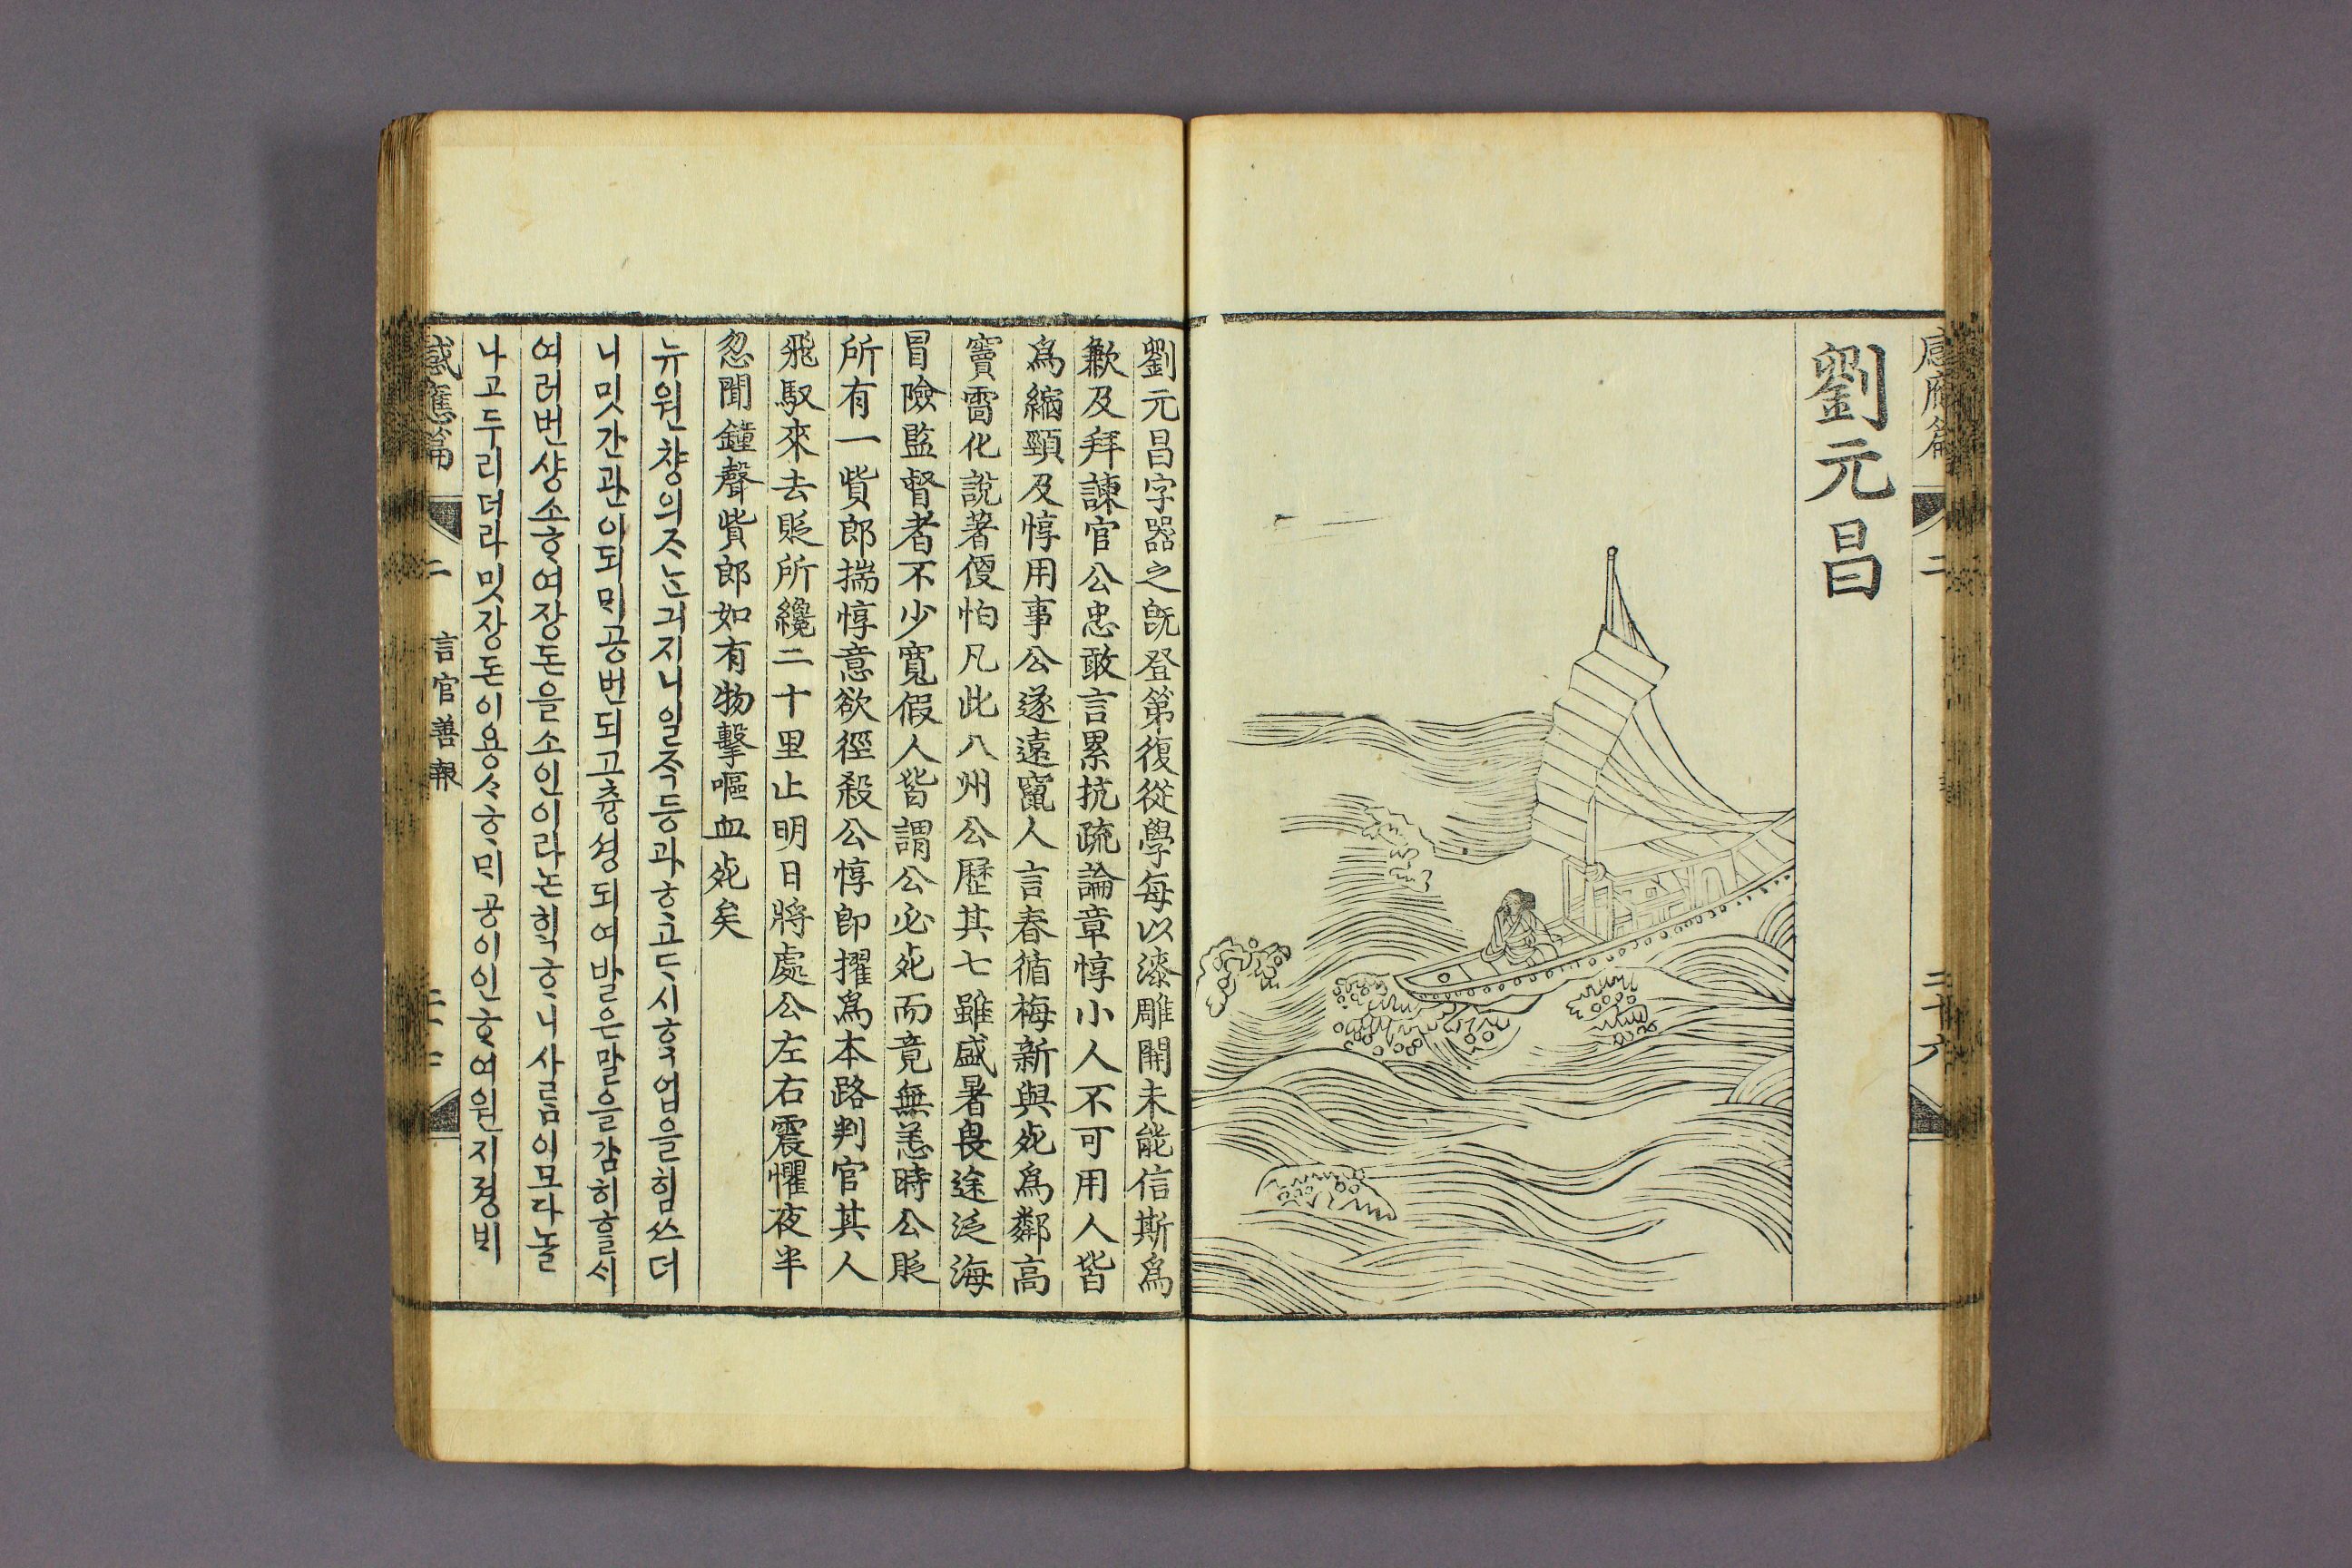 感應篇 二 二十六
劉元昌
劉元昌字器之旣登第復從學每以漆雕開未能信斯爲
歉及拜諫官公忠敢言累抗疏論章惇小人不可用人皆
爲縮頸及惇用事公遂遠竄人言春循梅新與死爲鄰高
竇雷化說著便怕凡此八州公歷其七雖盛暑畏途泛海
冒險監督者不少寬假人皆謂公必死而竟無恙時公貶
所有一貲郎揣惇意欲徑殺公惇卽擢爲本路判官其人
飛馭來去貶所纔二十里止明日將處公左右震懼夜半
忽聞鐘聲貲郎如有物擊嘔血死矣
뉴원챵의ᄌᆞᄂᆞᆫ긔지니일즉등과ᄒᆞ고ᄃᆞ시ᄒᆞᆨ업을힘쓰더
니밋간관이되ᄆᆡ공번되고츙셩되여발은말을감히ᄒᆞᆯᄉᆡ
여러번샹소ᄒᆞ여장돈을소인이라논ᄒᆡᆨᄒᆞ니사ᄅᆞᆷ이모다놀
나고두리더라밋장돈이용ᄉᆞᄒᆞᄆᆡ공이인ᄒᆞ여원지졍ᄇᆡ
感應篇 二 言官善報